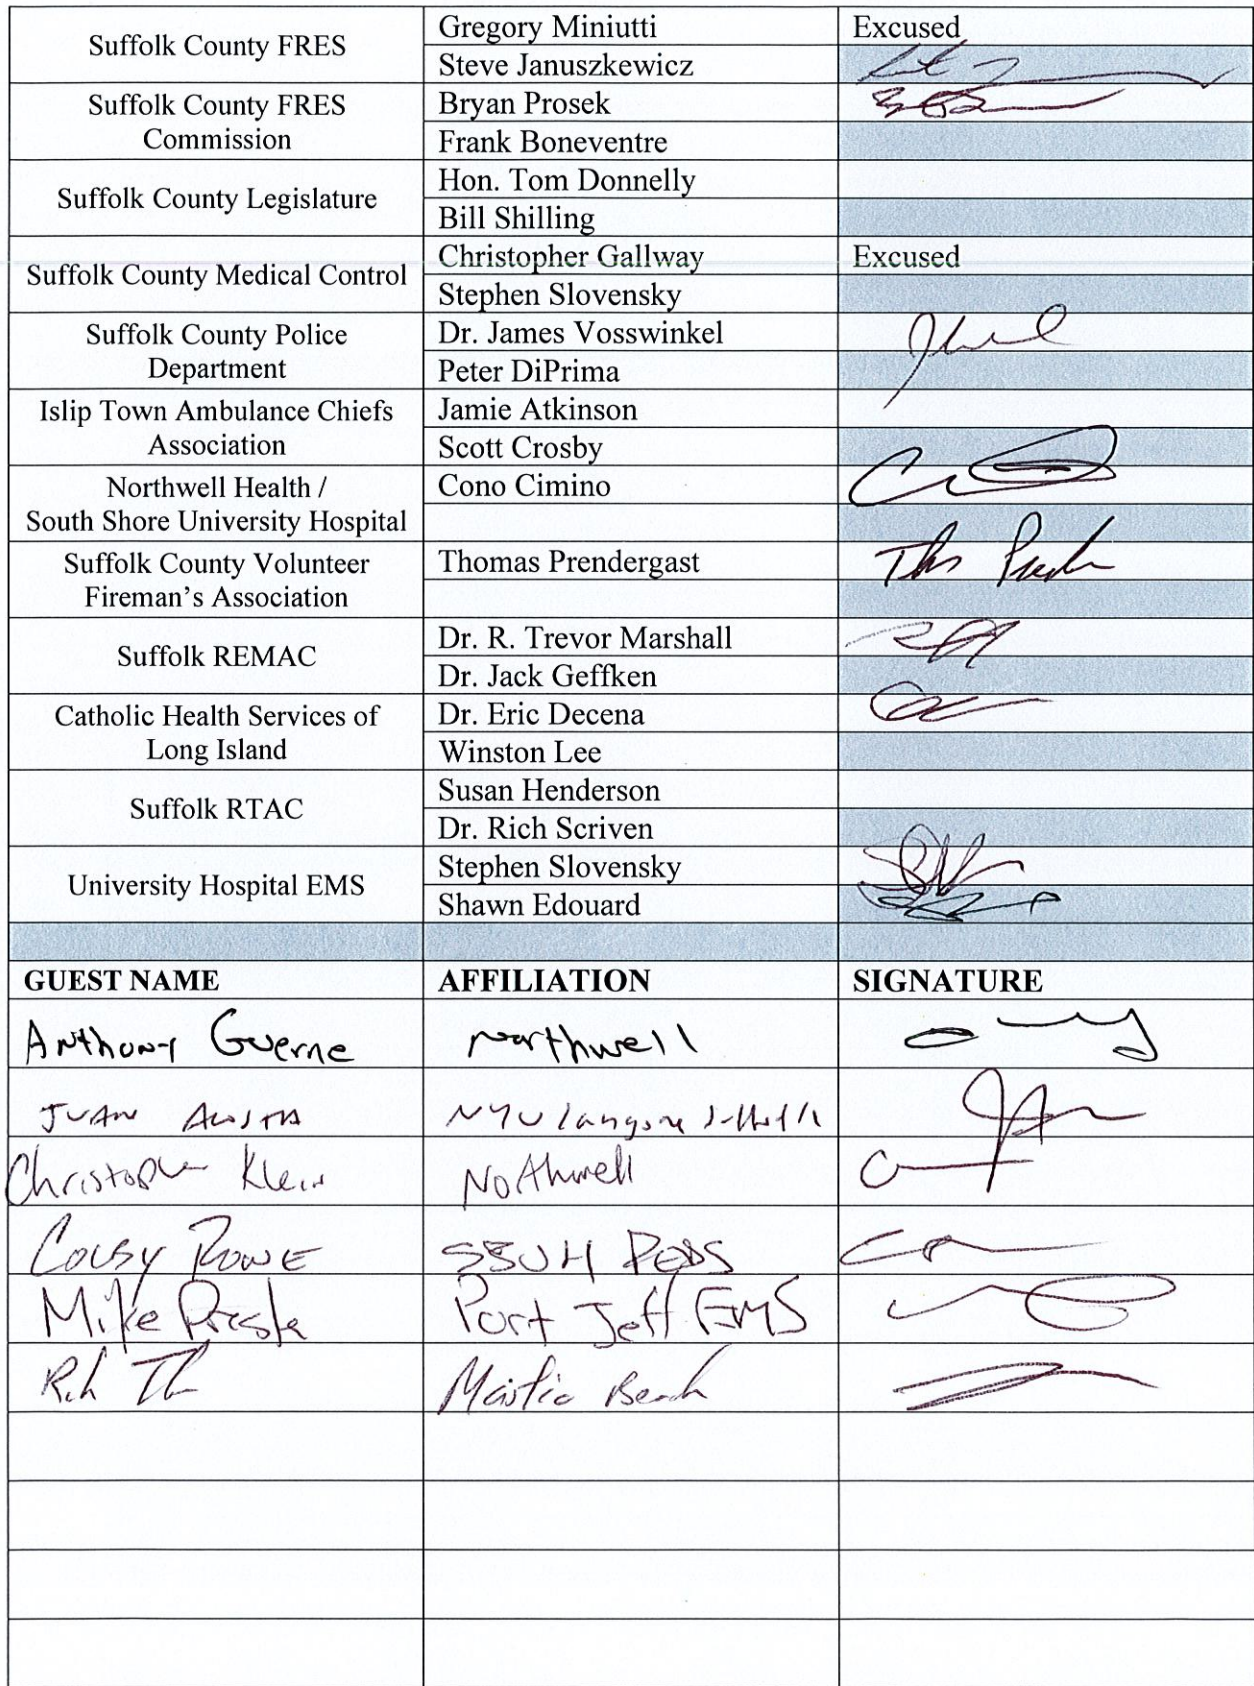 Suffolk County FRES
Gregory Miniutti Excused
Steve Januszkewicz
Suffolk County FRES
Commission
Bryan Prosek
Frank Boneventre
Suffolk County Legislature
Hon. Tom Donnelly
Bill Shilling
Suffolk County Medical Control
Christopher Gallway Excused
Stephen Slovensky
Suffolk County Police
Department
Dr. James Vosswinkel
Peter DiPrima
Islip Town Ambulance Chiefs
Association
Jamie Atkinson
Scott Crosby
Northwell Health /
South Shore University Hospital
Cono Cimino
Suffolk County Volunteer
Fireman's Association
Thomas Prendergast
Suffolk REMAC
Dr. R. Trevor Marshall
Dr. Jack Geffken
Catholic Health Services of
Long Island
Dr. Eric Decena
Winston Lee
Suffolk RTAC
Susan Henderson
Dr. Rich Scriven
University Hospital EMS
Stephen Slovensky
Shawn Edouard
GUEST NAME AFFILIATION SIGNATURE
Anthony Guerne Northwell
JUAN NYU Langone
Christopher Klein Northwell
COLBY ROWE SBUH PEDS
Mike Port Jeff EMS
Rich Mastic Beach